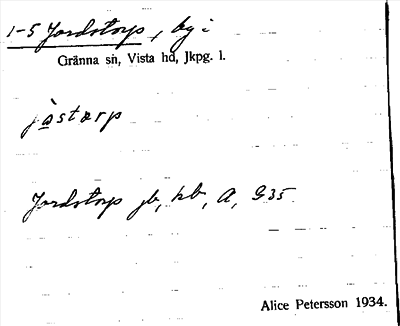 1-5 Jordstorp, by i
Gränna sn, Vista hd, Jkpg. l.
jàstarp
Jordstorp jb, kb, A, G35
Alice Petersson 1934.